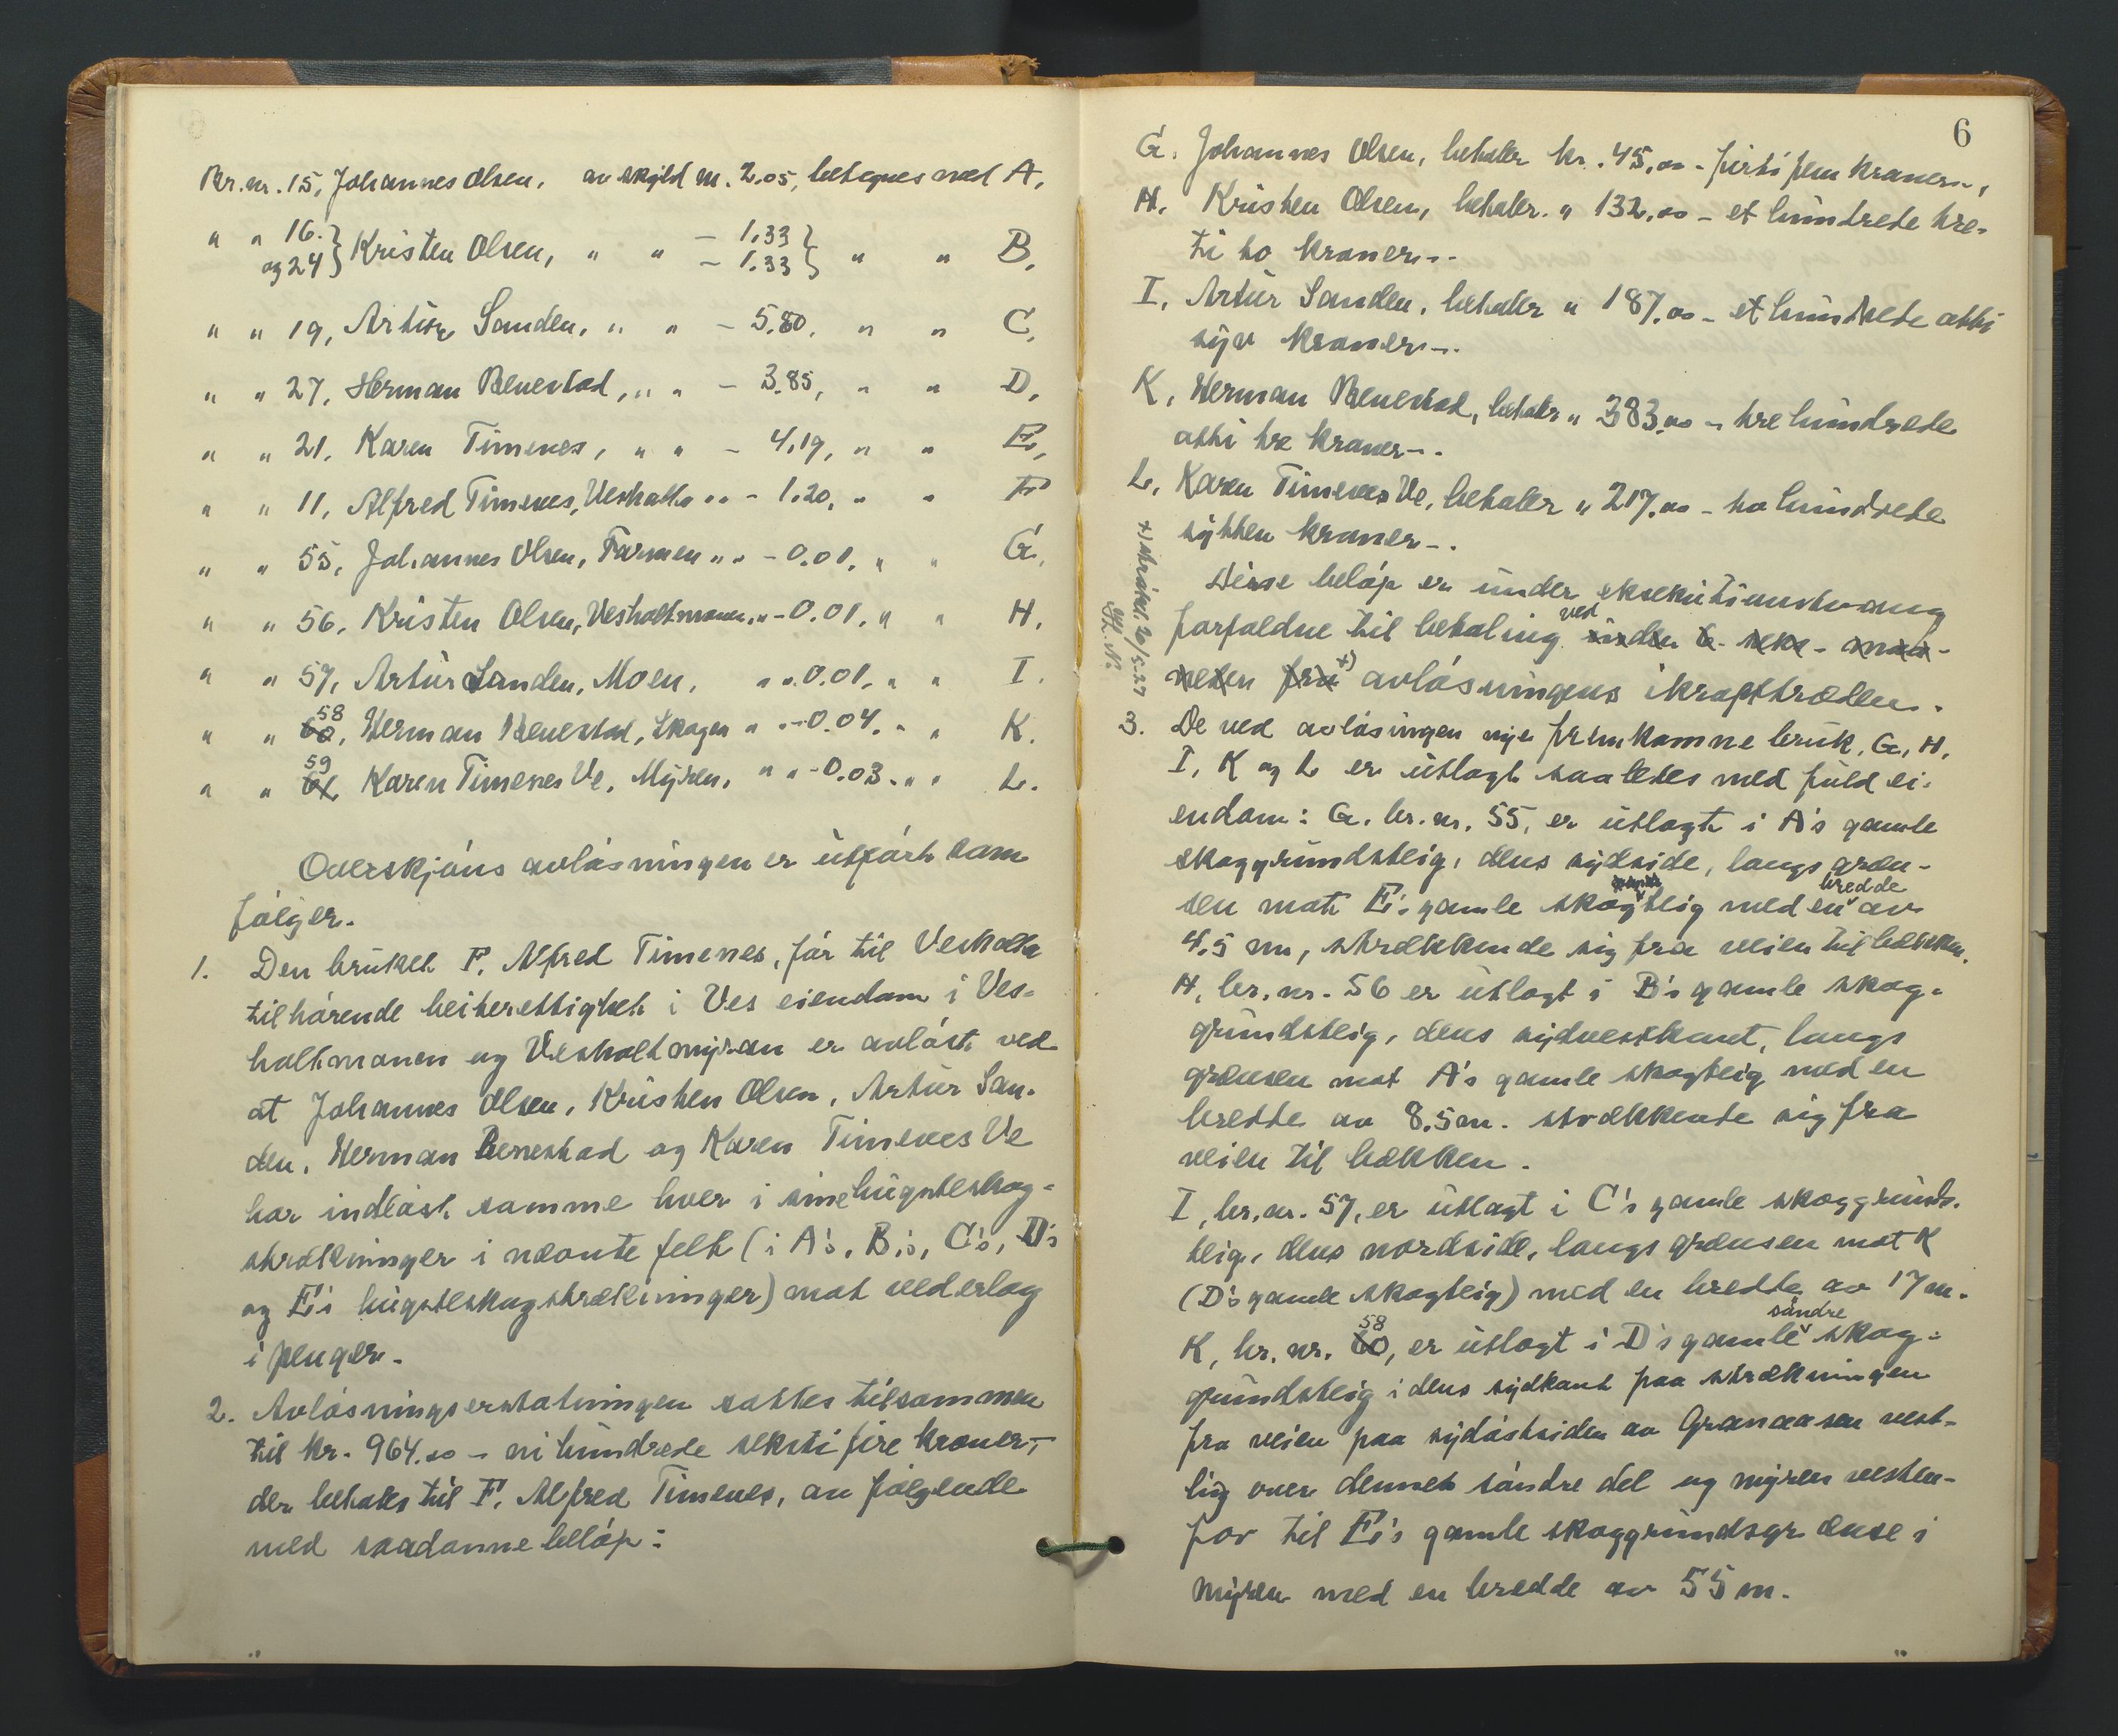 Br.nr. 15, Johannes Olsen, av skyld m. 2.05, betegnes med A,
" " 16. og 24 } Kristen Olsen, " " - 1.33 - 1.33 } " " B,
" " 19, Artur Sanden, " " - 5.80, " " C,
" " 27, Herman Benestad, " " - 3.85, " " D,
" " 21, Karen Timenes, " " - 4,19, " " E,
" " 11, Alfred Timenes, Vesholta " " - 1.20, " " F
" " 55, Johannes Olsen, Farmen " " - 0.01, " " G,
" " 56, Kristen Olsen, Vesholtmoen, " " - 0.01, " " H,
" " 57, Artur Sanden, Moen, " " 0.01, " " I.
" " 58 60, Herman Benestad, Skogen " " - 0.04. " " K.
" " 59 61, Karen Timenes Ve, Myren, " " - 0.03. " " L.
Overskjøns avløsningen er utført som
følger.
1. Den bruket F. Alfred Timenes, før til Vesholta
tilhørende beiterettighet i Ves eiendom i Ves-
holtmonen og Vesholtmyran er avløst ved
at Johannes Olsen, Kristen Olsen, Artur San-
den, Herman Benestad og Karen Timenes Ve
har indløst samme hver i sine hugstskog-
strækninger i nævnte felt (i A's, B's, C's, D's
og E's hugstskogstrækninger) mot vederlag
i penger.
2. Avløsningserstatningen sattes tilsammen
til kr. 964.00 - ni hundrede seksti fire kroner -
der betales til F. Alfred Timenes, av følgende
med saadanne beløp:
6
G. Johannes Olsen, betaler kr. 45,00 - førti fem kroner -,
H. Kristen Olsen, betaler. " 132,00 - et hundrede tre-
ti to kroner -.
I, Artur Sanden, betaler " 187.00 - et hundrede otti
syv kroner -.
K, Herman Benestad, betaler " 383,00 - tre hundrede
otti tre kroner -.
L, Karen Timenes Ve, betaler " 217.00 - to hundrede
sytten kroner -.
Disse beløp er under eksekutionstvang
forfaldne til betaling ved inden 6 - seks - maa-
neter fra x) avløsningens ikrafttræden.
x) strøket 20/5-27
3. De ved avløsingen nye fremkomne bruk, G, H,
I, K og L er utlagt saaledes med fuld ei-
endom: G. br.nr. 55, er utlagt i A's gamle
skoggrundsteig, dens sydside, langs græn-
sen mot E's gamle skogteig med en bredde av
4.5 m, strækkende sig fra veien til bækken.
H, br.nr. 56 er utlagt i B's gamle skog-
grundsteig, dens sydvestkant, langs
grænsen mot A's gamle skogteig med en
bredde av 8.5 m. strækkende sig fra
veien til bækken.
I, br.nr. 57, er utlagt i C's gamle skoggrunds-
teig, dens nordside, langs grænsen mot K
(D's gamle skogteig) med en bredde av 17 m.
K, br.nr. 58 60, er utlagt i D's gamle søndre skog-
grundsteig i dens sydkant paa strækningen
fra veien paa sydøstsiden av Granaasen vest-
lig over dennes søndre del og myren vesten-
for til E's gamle skoggrundsgrænse i
myren med en bredde av 55 m.